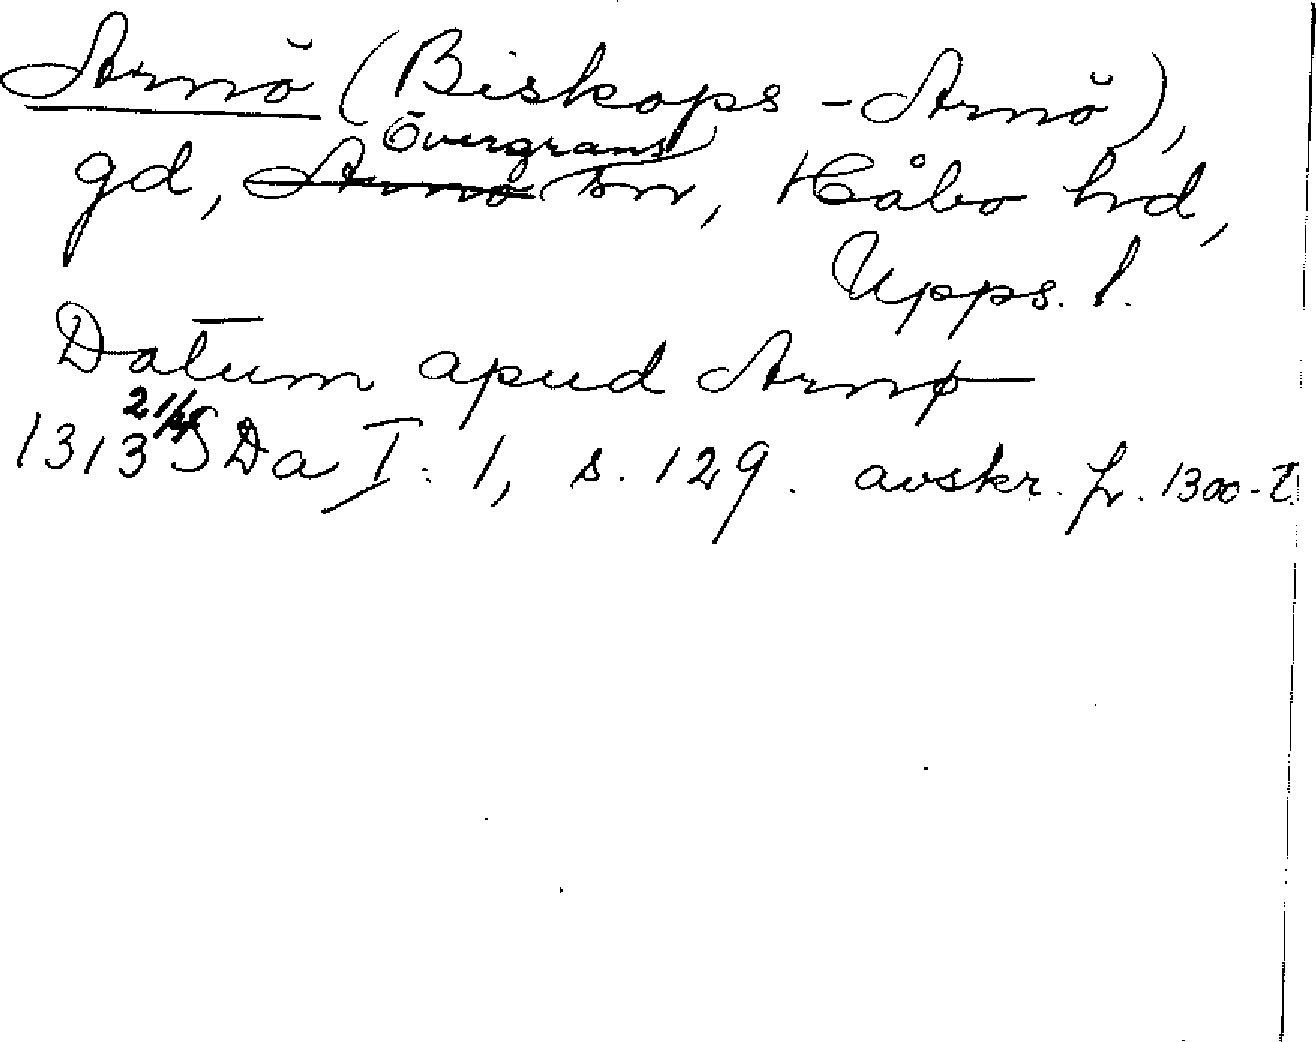 Arnö (Biskops-Arnö),
Övergrans
gd, Arnö sn, Håbo hrd,
Upps. l.
Datum apud Arnø
1313 21/4 SDa I: 1, s. 129. avskr. fr. 1300-t.